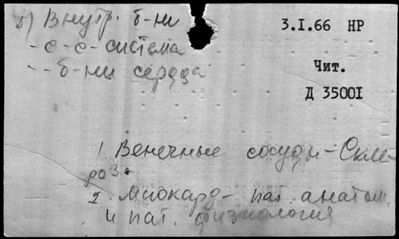 б) Внутр. б-ни
- с-с-система
-- б-ни сердца
3.I.66 НР
Чит.
Д 35001
1. Венечные сосуды - Скле-
роз.
2. Миокард - пат. анатом.
и пат. физиология